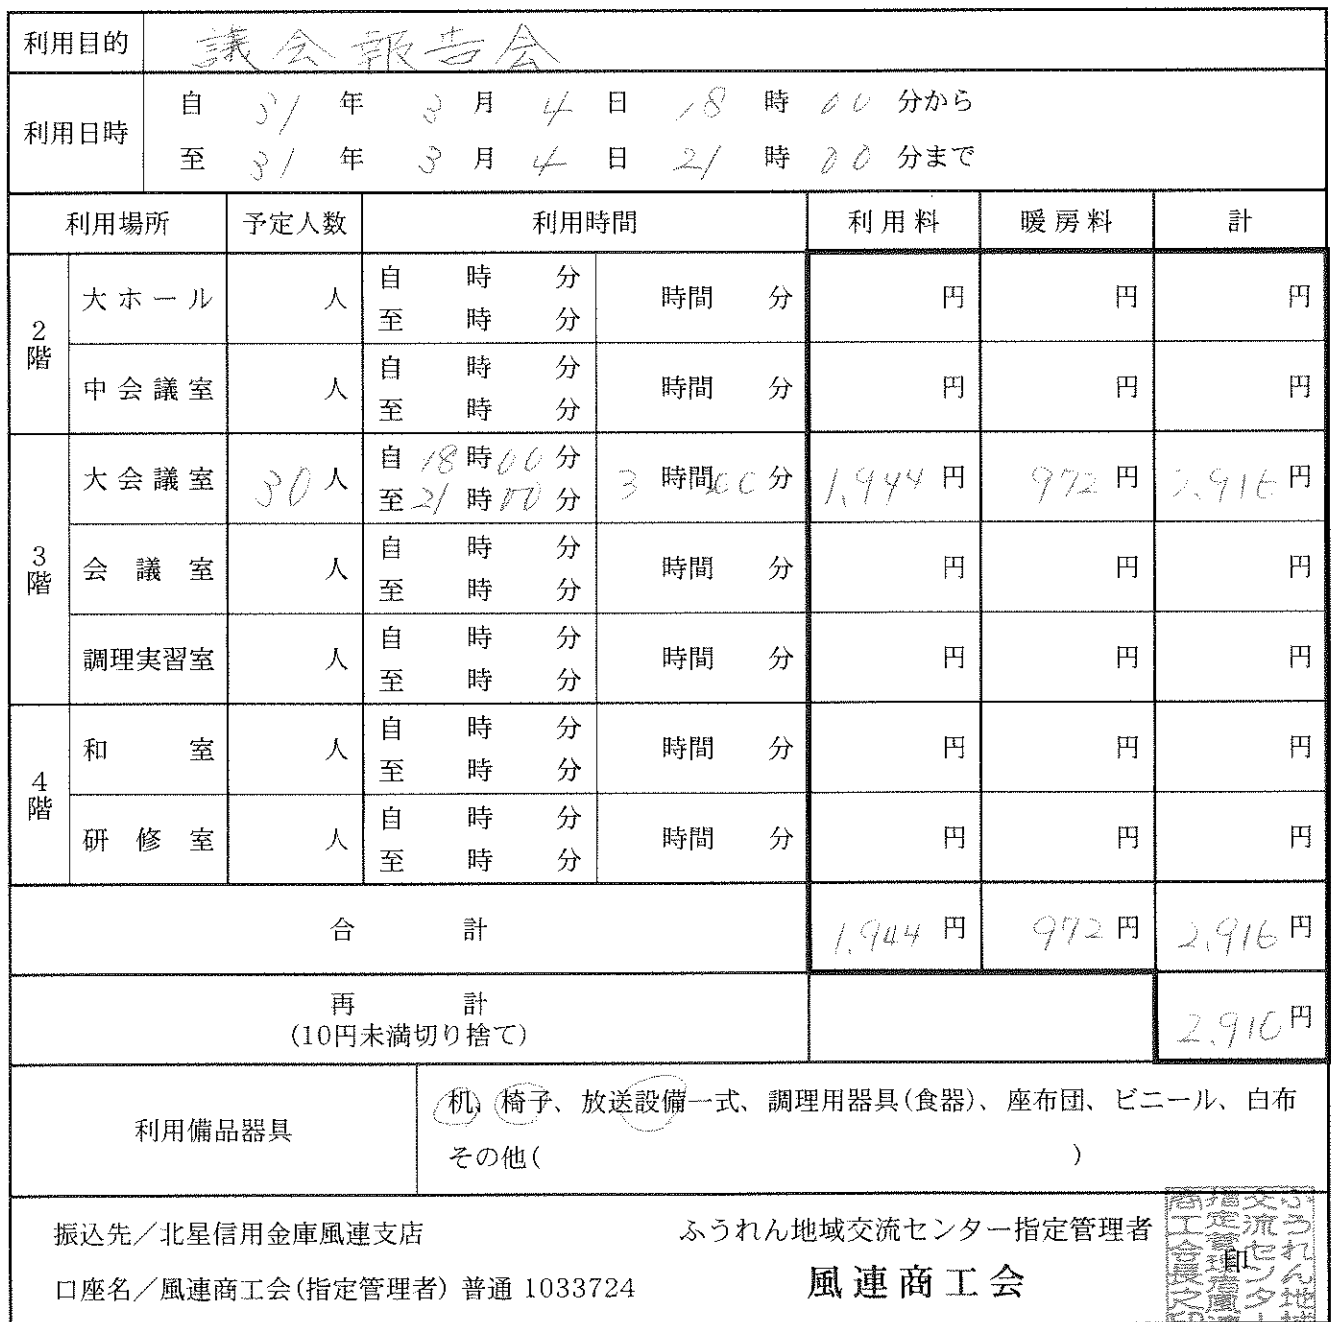 利用目的 議会報告会
利用日時 自 31 年 3 月 4 日 18 時 00 分から
至 31 年 3 月 4 日 21 時 00 分まで
利用場所 予定人数 利用時間 利用料 暖房料 計
2階 大ホール 人 自 時 分 至 時 分 時間 分 円 円 円
中会議室 人 自 時 分 至 時 分 時間 分 円 円 円
3階 大会議室 30人 自 18時00分 至21時00分 3時間00分 1,944円 972円 2,916円
会議室 人 自 時 分 至 時 分 時間 分 円 円 円
調理実習室 人 自 時 分 至 時 分 時間 分 円 円 円
4階 和室 人 自 時 分 至 時 分 時間 分 円 円 円
研修室 人 自 時 分 至 時 分 時間 分 円 円 円
合計 1,944円 972円 2,916円
再計 2,910円
(10円未満切り捨て)
利用備品器具 机、椅子、放送設備一式、調理用器具(食器)、座布団、ビニール、白布
その他( )
振込先／北星信用金庫風連支店 ふうれん地域交流センター指定管理者
口座名／風連商工会(指定管理者) 普通 1033724 風連商工会 印